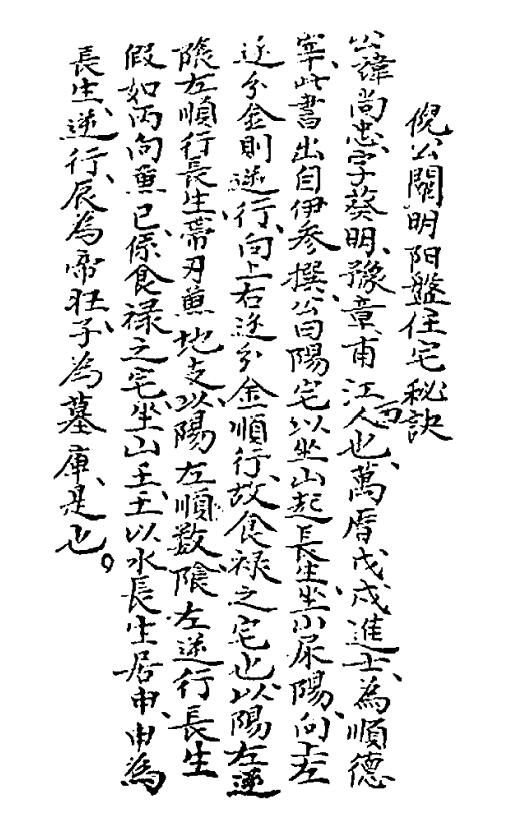 倪公闢明阳盤住宅秘訣
公諱尚忠字葵明豫章甫江人也萬曆戊戌進士為順德
宰此書出自伊參撰公曰陽宅以坐山起長生坐山屎陽向上左
逆分金則逆行向上右逆分金順行故食禄之宅也以陽左逆
陰左順行長生帶刃兼地支以陽左順数陰左逆行長生
假如丙向兼巳係食禄之宅坐山壬壬以水長生居申申為
長生逆行辰為帝旺子為墓庫是也。